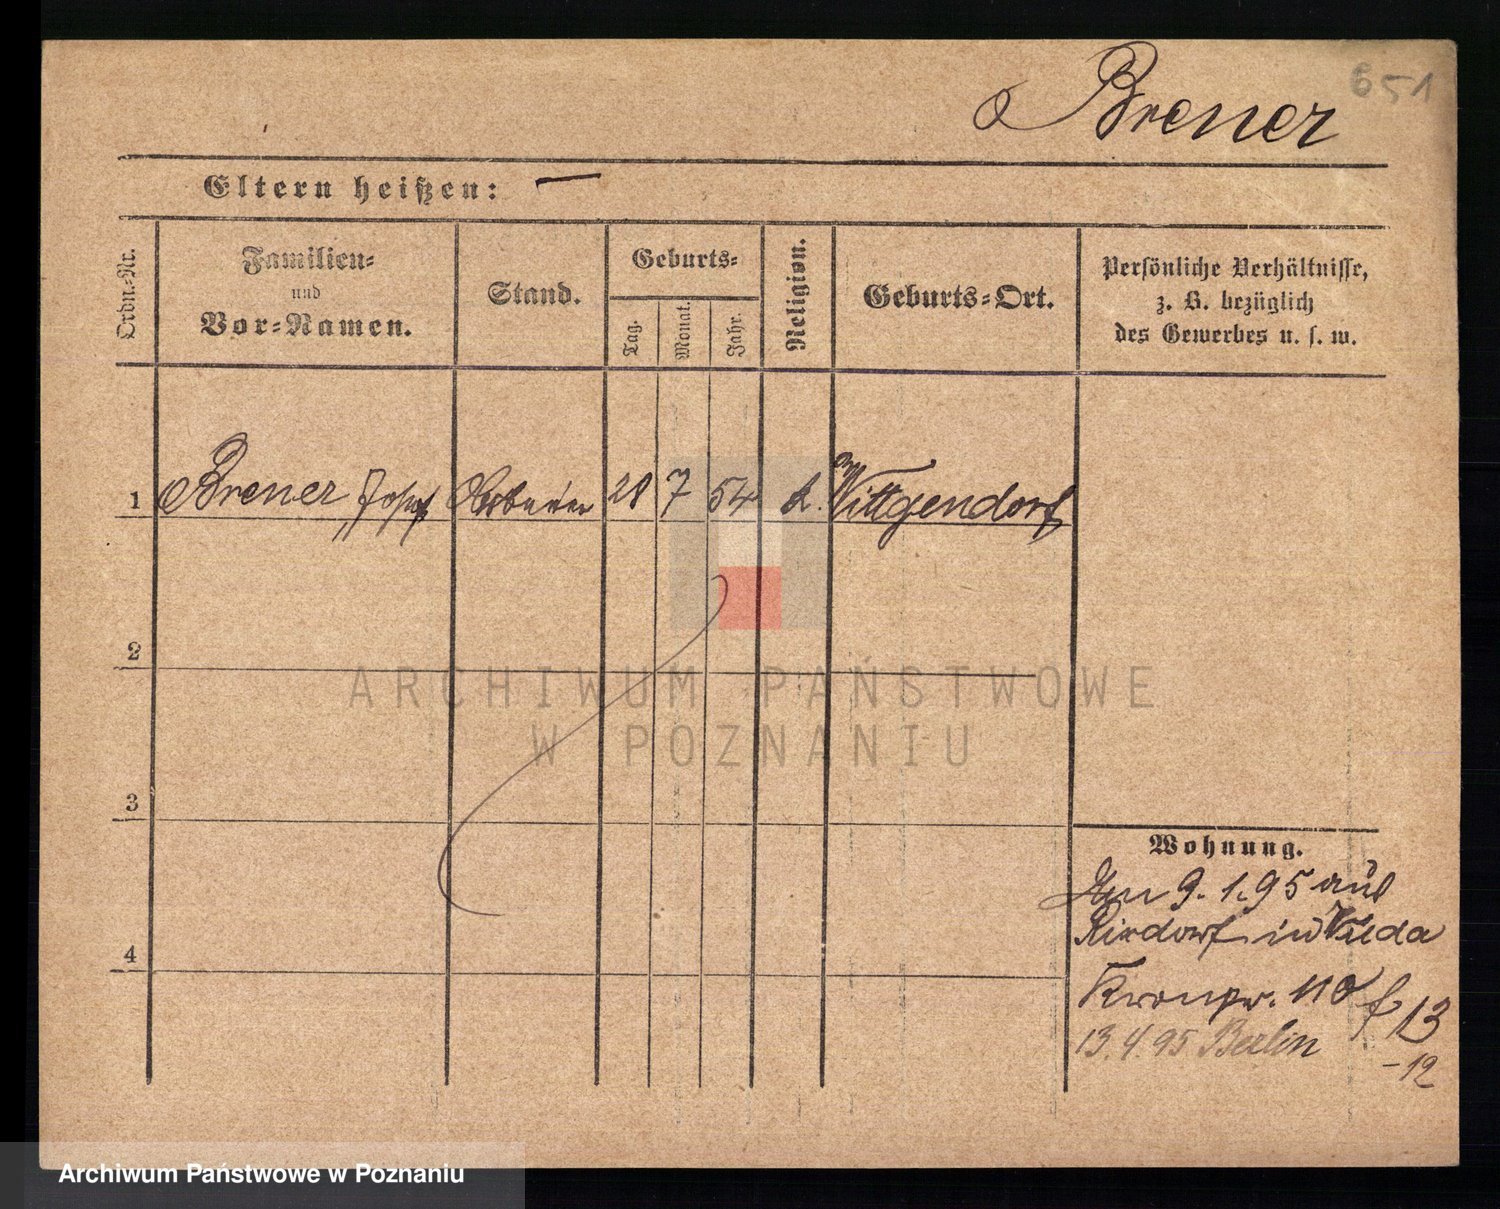 651
Brener
Eltern heißen: —
Ordn.-Nr.
Familien-
und
Vor-Namen.
Stand.
Geburts-
Tag.
Monat.
Jahr.
Religion.
Geburts-Ort.
Persönliche Verhältnisse,
z. B. bezüglich
des Gewerbes u. s. w.
1 Brener Josef Arbeiter 28 7 54 k. Wittgendorf
2
3
4
Wohnung.
Am 9. 1. 95 aus
Rixdorf in Wilda
Kronpr. 110 f 13
13. 4. 95 Berlin
-12
ARCHIWUM PAŃSTWOWE
W POZNANIU
Archiwum Państwowe w Poznaniu